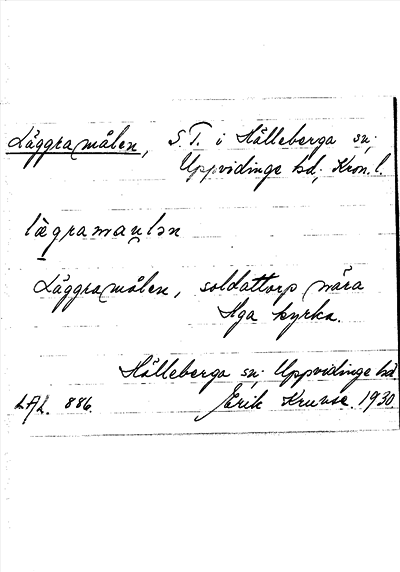 Läggramålen, S.T. i Hälleberga sn;
Uppvidinge hd; Kron. l.
lägramau̯lən
Läggramålen, soldattorp nära
Hga kyrka.
Hälleberga sn; Uppvidinge hd.
LAL. 886. Erik Kruuse. 1930